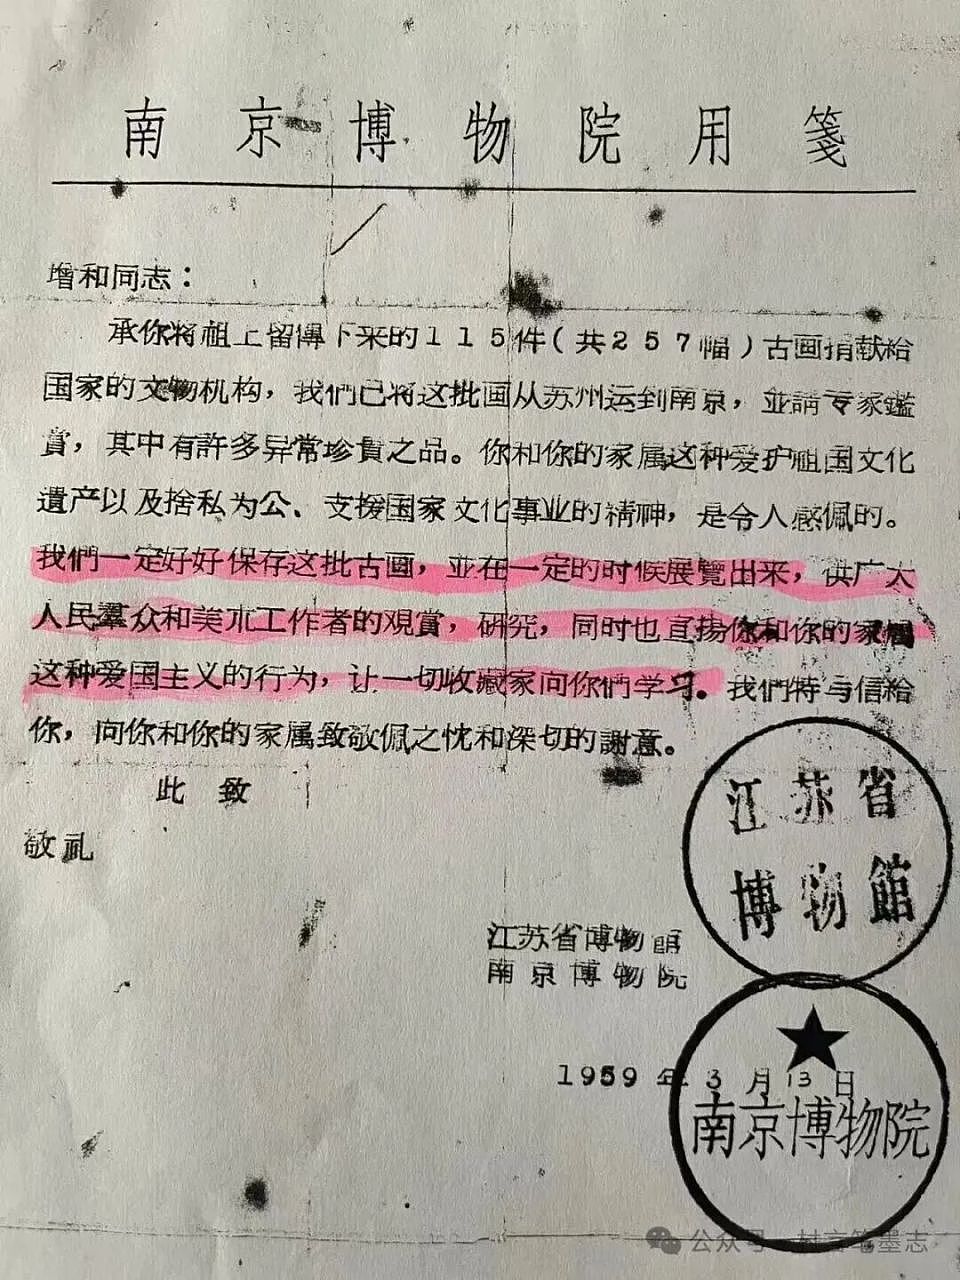 南京博物院用箋
增和同志：
承你将祖上留傳下来的115件(共257幅)古画捐献給
国家的文物机构，我們已将这批画从苏州运到南京，並請专家鑑
賞，其中有許多异常珍貴之品。你和你的家属这种爱护祖国文化
遺产以及捨私为公、支援国家文化事业的精神，是令人感佩的。
我們一定好好保存这批古画，並在一定的时候展覽出来，供广大
人民羣众和美朮工作者的观賞，研究，同时也直揚你和你的家属
这种爱国主义的行为，让一切收藏家向你們学习。我們特与信給
你，向你和你的家属致敬佩之忱和深切的謝意。
此致
敬礼
江苏省
博物館
江苏省博物館
南京博物院
1959年3月13日
南京博物院
公众号·村言笔墨志